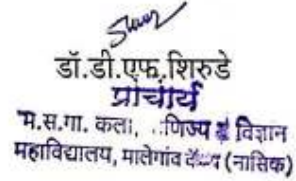 डॉ.डी.एफ.शिरुडे
प्राचार्य
म.स.गा. कला, विज्ञान
महाविद्यालय, मालेगांव (नासिक)